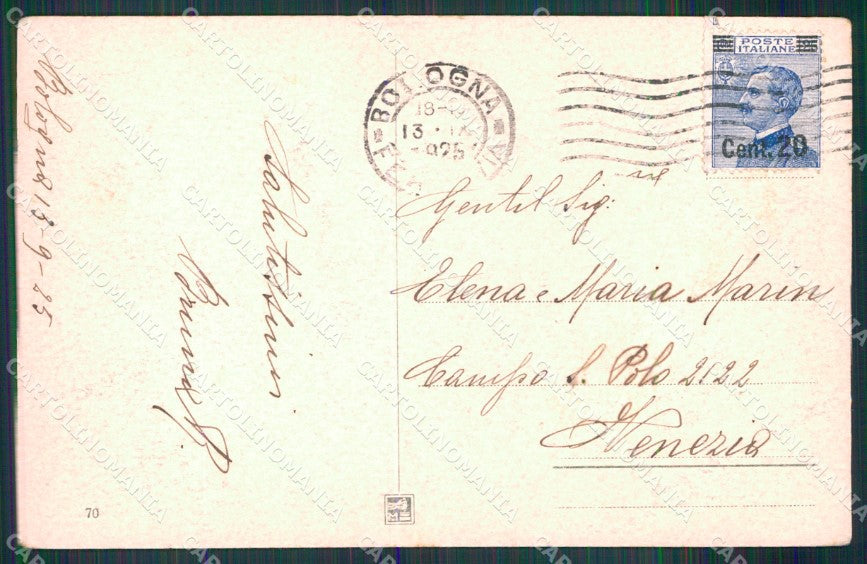 Bologna 13-9-25
Salutissimi
Bruna B.
BOLOGNA
18-19
13 · IX
1925
POSTE
ITALIANE
Cent. 20
Gentil Sig:ne
Elena e Maria Marin
Campo S. Polo 2122
Venezia
70
CARTOLINOMANIA